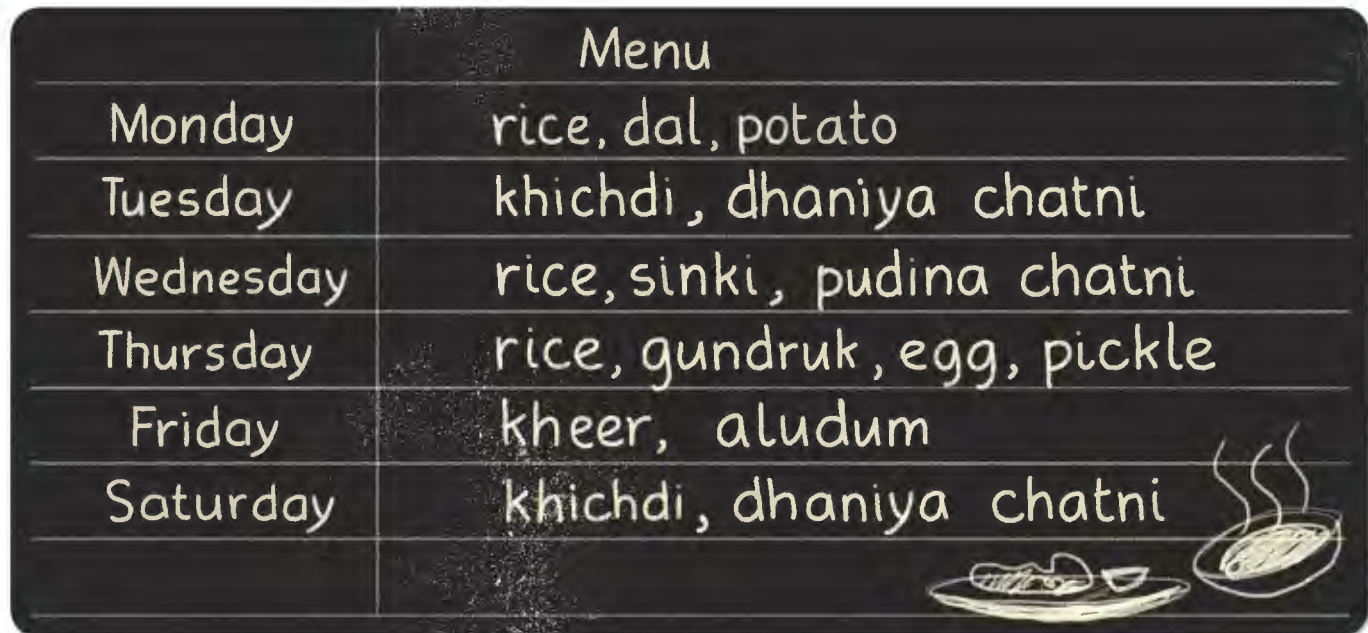 Menu
Monday rice, dal, potato
Tuesday khichdi, dhaniya chatni
Wednesday rice, sinki, pudina chatni
Thursday rice, gundruk, egg, pickle
Friday kheer, aludum
Saturday khichdi, dhaniya chatni